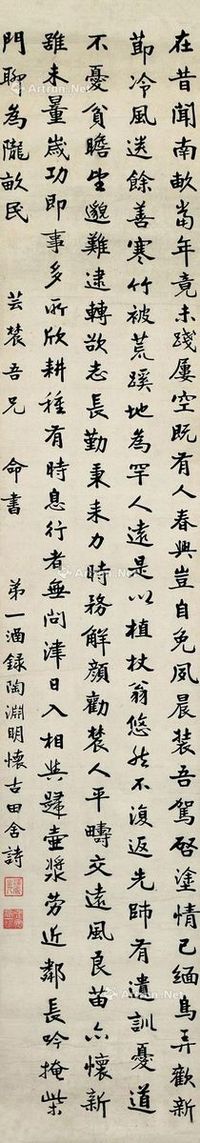 在昔聞南畝當年竟未踐屢空既有人春興豈自免夙晨裝吾駕啓塗情已緬鳥弄歡新
節冷風送餘善寒竹被荒蹊地為罕人遠是以植杖翁悠然不復返先師有遺訓憂道
不憂貧瞻望邈難逮轉欲志長勤秉耒力時務解顏勸農人平疇交遠風良苗亦懷新
雖未量歲功即事多所欣耕種有時息行者無問津日入相與歸壺漿勞近鄰長吟掩柴
門聊為隴畝民
芸農吾兄 命書 弟一涵錄陶淵明懷古田舍詩
Artron.Net